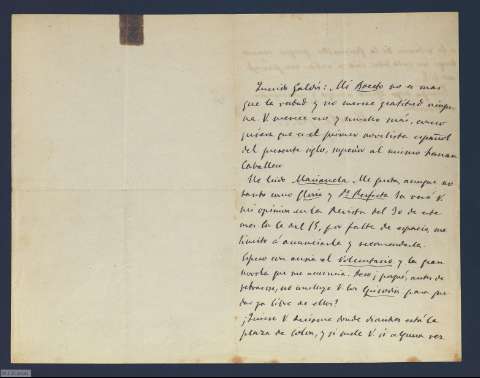 Querido Galdós: Mi Boceto no es mas
que la verdad y no merece gratitud ningu-
na. V. merece eso y mucho más, como
quiera que es el primer novelista español
del presente siglo, superior al mismo Fernan
Caballero.
He leido Marianela. Me gusta, aunque no
tanto como Gloria y Dª Perfecta. Ya verá V.
mi opinion en la Revista del 30 de este
mes. En la del 15, por falta de espacio, me
limito á anunciarla y recomendarla.
Espero con ansia el Voluntario y la gran
novela que me anuncia. Pero, ¿porqué, antes de
no concluye V. los Episodios para que-
dar ya libre de ellos?
¿Quiere V. decirme donde diantres está la
plaza de Colon, y si suele V. ir alguna vez